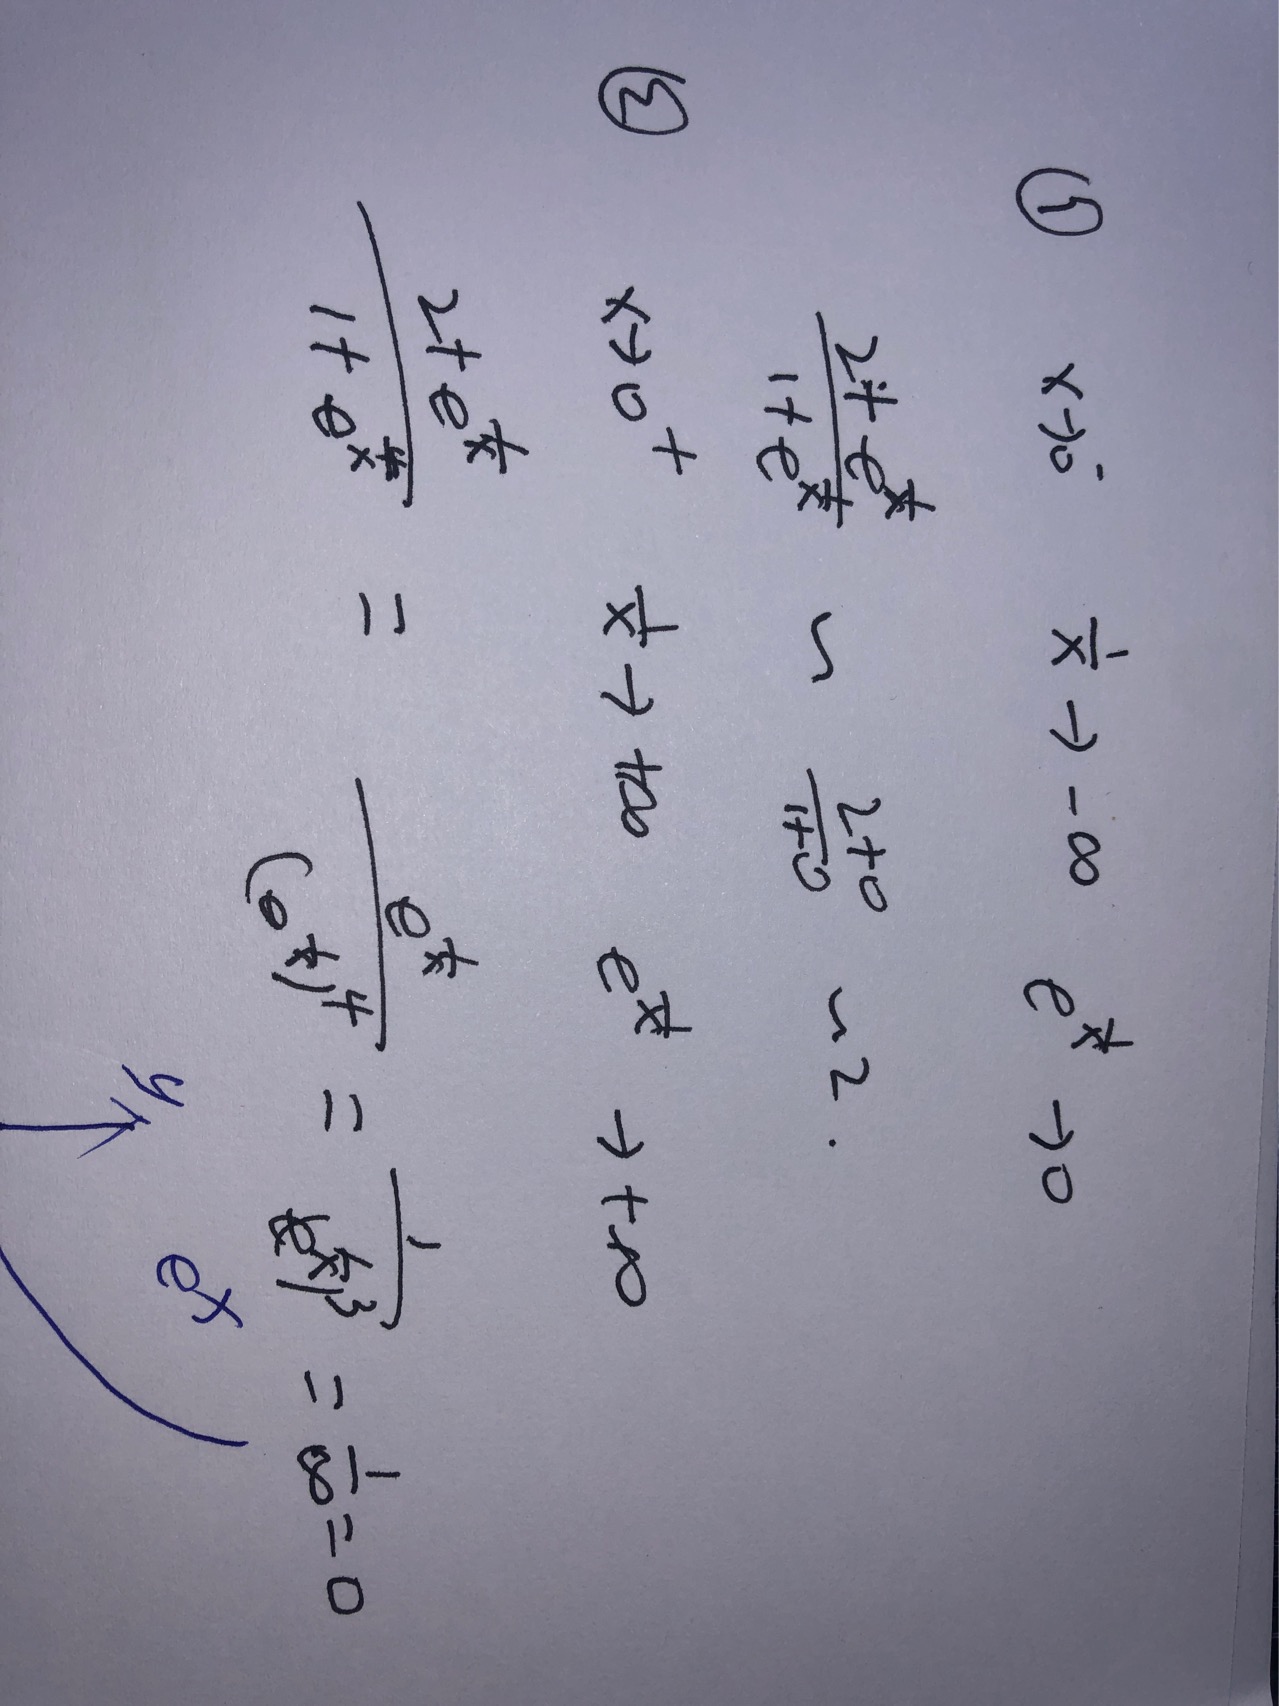 ① x→0⁻ 1/x → -∞ e^(1/x) → 0
(2+e^(1/x))/(1+e^(1/x)) ~ (2+0)/(1+0) ~ 2.
② x→0⁺ 1/x → +∞ e^(1/x) → +∞
(2+e^(1/x))/(1+e^(4/x)) = e^(1/x)/(e^(1/x))^4 = 1/(e^(1/x))^3 = 1/∞ = 0
y e^x